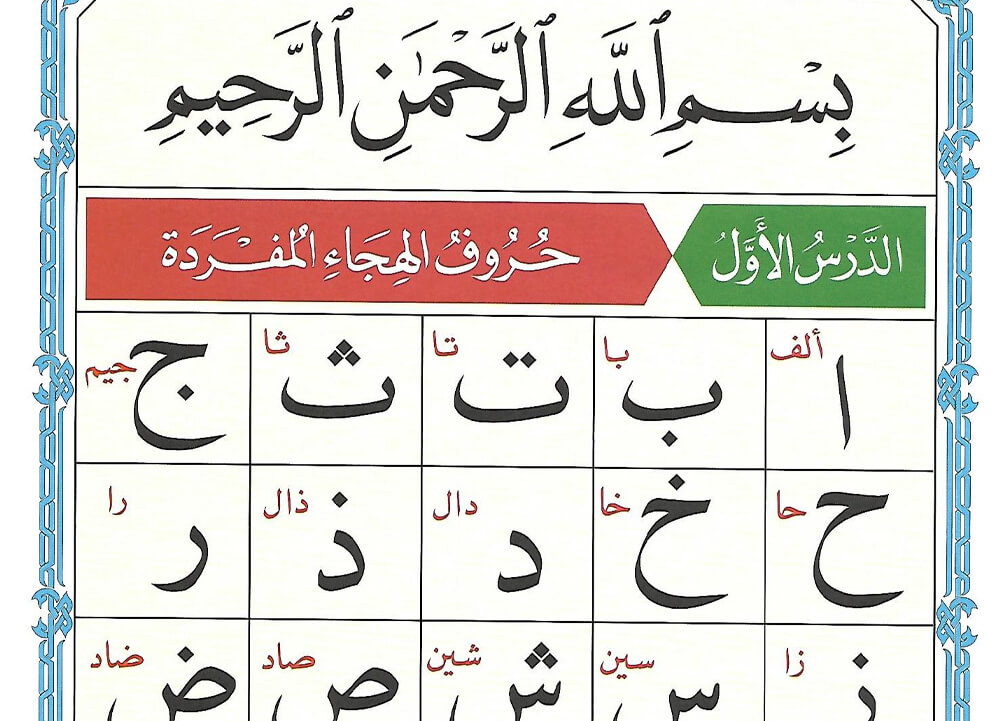 بِسْمِ ٱللَّهِ ٱلرَّحْمَٰنِ ٱلرَّحِيمِ
الدَّرْسُ الأَوَّلُ حُرُوفُ الهِجَاءِ المُفْرَدَة
ا ألف ب با ت تا ث ثا ج جيم
ح حا خ خا د دال ذ ذال ر را
ز زا س سين ش شين ص صاد ض ضاد